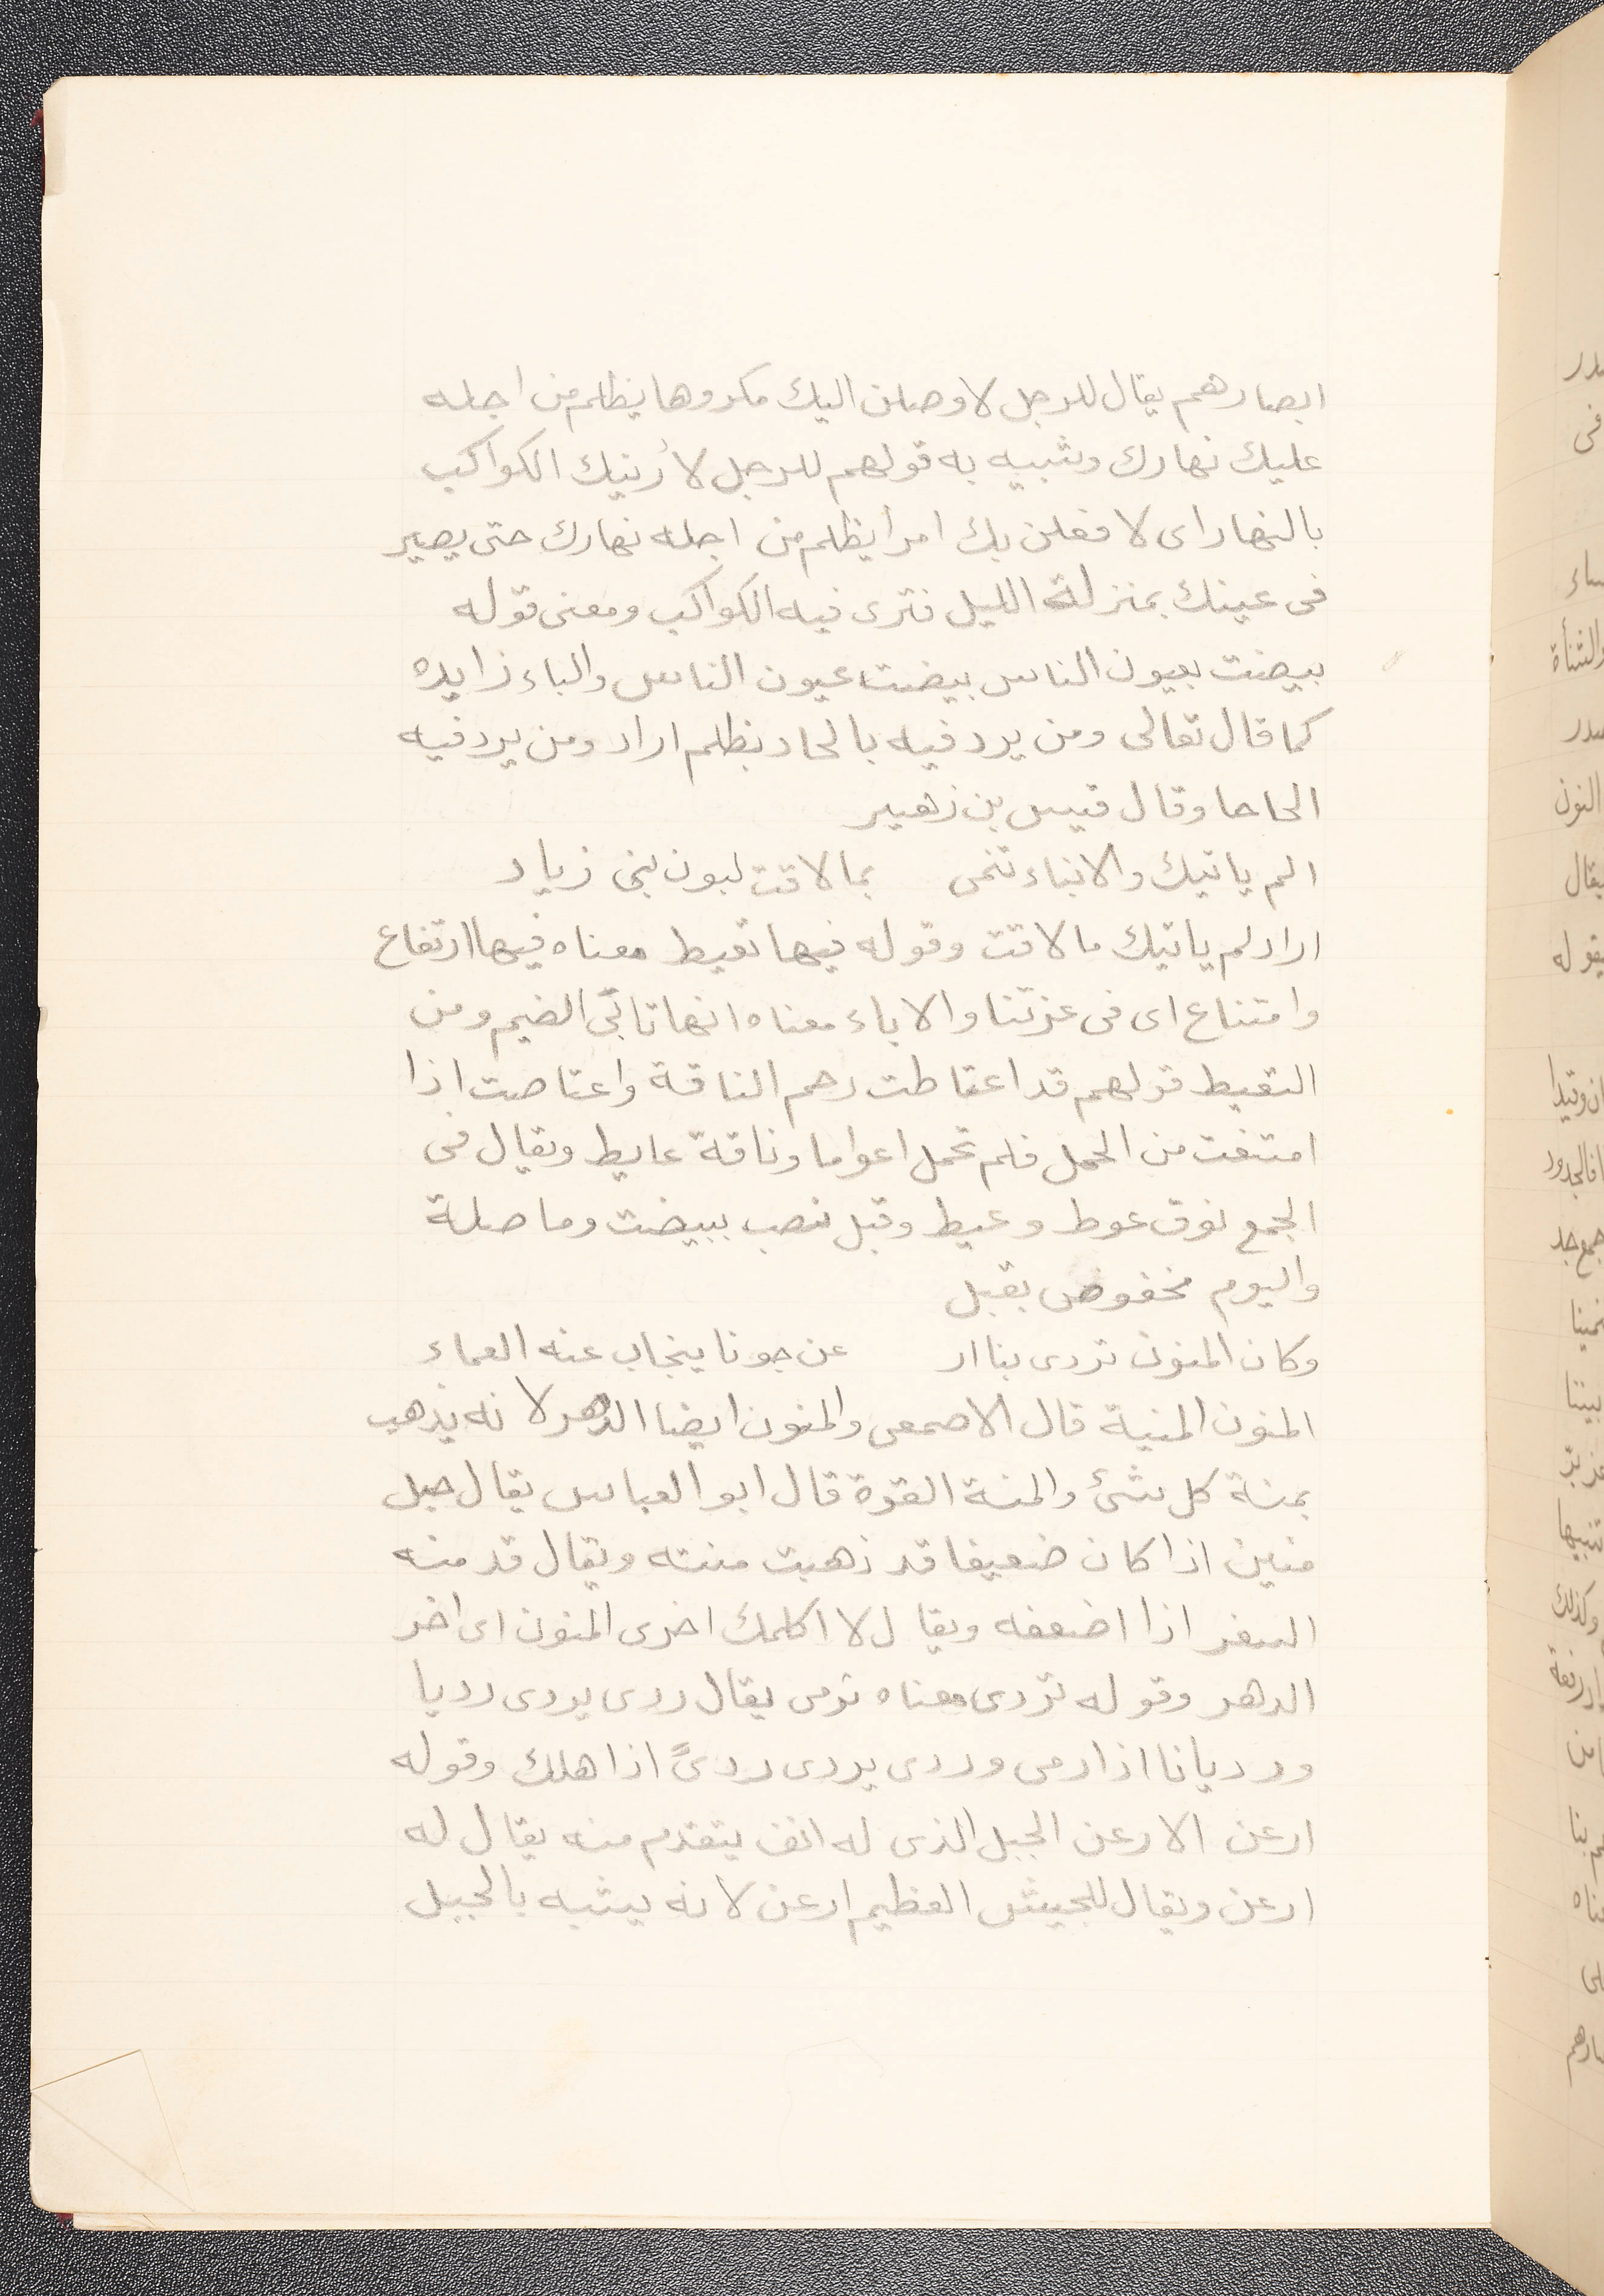 ابصارهم يقال للرجل لاوصلن اليك مكروها يظلم من اجله
عليك نهارك وشبيه به قولهم للرجل لأرنيك الكواكب
بالنهار اى لافعلن بك امرا يظلم من اجله نهارك حتى يصير
فى عينك بمنزلة الليل فترى فيه الكواكب ومعنى قوله
بيضت بعيون الناس بيضت عيون الناس والباء زايده
كما قال تعالى ومن يرد فيه بالحاد بظلم اراد ومن يرد فيه
الحاحا وقال قيس بن زهير
الم ياتيك والانباء تنمى بما لاقت لبون بنى زياد
اراد لم ياتيك ما لاقت وقوله فيها تعيط معناه فيها ارتفاع
وامتناع اى فى عزتنا والاباء معناه انها تابى الضيم ومن
التعيط قولهم قد اعتاطت رحم الناقة واعتاصت اذا
امتنعت من الحمل فلم تحمل اعواما وناقة عايط ويقال فى
الجمع نوق عوط وعيط وقبل نصب ببيضت وما صلة
واليوم مخفوض بقبل
وكان المنون تردى بنا ار عن جونا ينجاب عنه العماء
المنون المنية قال الاصمعى والمنون ايضا الدهر لانه يذهب
بمنة كل شئ والمنة القوة قال ابو العباس يقال حبل
منين اذا كان ضعيفا قد ذهبت منته ويقال قد منه
السفر اذا اضعفه ويقال لا اكلمك اخرى المنون اى اخر
الدهر وقوله تردى معناه ترمى يقال ردى يردى رديا
ورديانا اذا رمى وردى يردى ردىً اذا هلك وقوله
ارعن الارعن الجبل الذى له انف يتقدم منه يقال له
ارعن ويقال للجيش العظيم ارعن لانه يشبه بالجبل